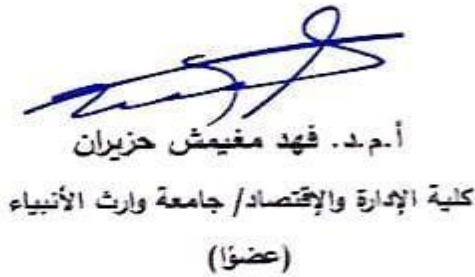 أ.م.د. فهد مغيمش حزيران
كلية الإدارة والإقتصاد/ جامعة وارث الأنبياء
(عضوًا)